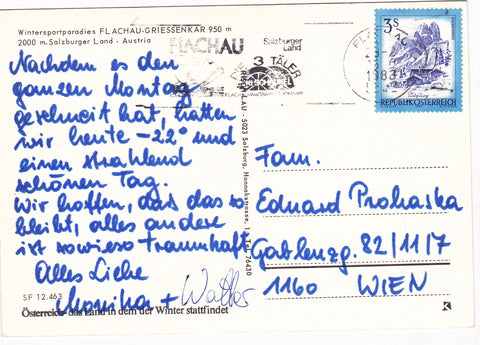 Wintersportparadies FLACHAU-GRIESSENKAR 950 m
2000 m. Salzburger Land - Austria
Nachdem es den
ganzen Montag
geschneit hat, hatten
wir heute -22° und
einen strahlend
schönen Tag.
Wir hoffen, daß das so
bleibt, alles andere
ist sowieso traumhaft
Alles Liebe
Monika + Walter
SF 12.463
Österreich - das Land in dem der Winter stattfindet
FLACHAU
Salzburger
Land
3 TÄLER
FLACHAU
1983
3S
REPUBLIK ÖSTERREICH
5023 Salzburg, Hannakstrasse, 1 Tel. 76430
Fam.
Eduard Prohaska
Gablenzg. 82/11/7
1160 WIEN